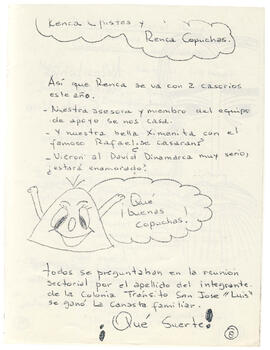 Renca Chistes y
Renca Copuchas.
Así que Renca se va con 2 casorios
este año.
- Nuestra asesora y miembro del equipo
de apoyo se nos casa.
- Y nuestra bella Ximenita con el
famoso Rafael; ¿se casarán?
- Vieron al David Dinamarca muy serio,
¿estará enamorado?
¡Qué
buenas
copuchas!
todos se preguntaban en la reunión
sectorial por el apellido del integrante
de la Colonia Tránsito San José "Luis"
se ganó la Canasta familiar.
¡Qué Suerte!